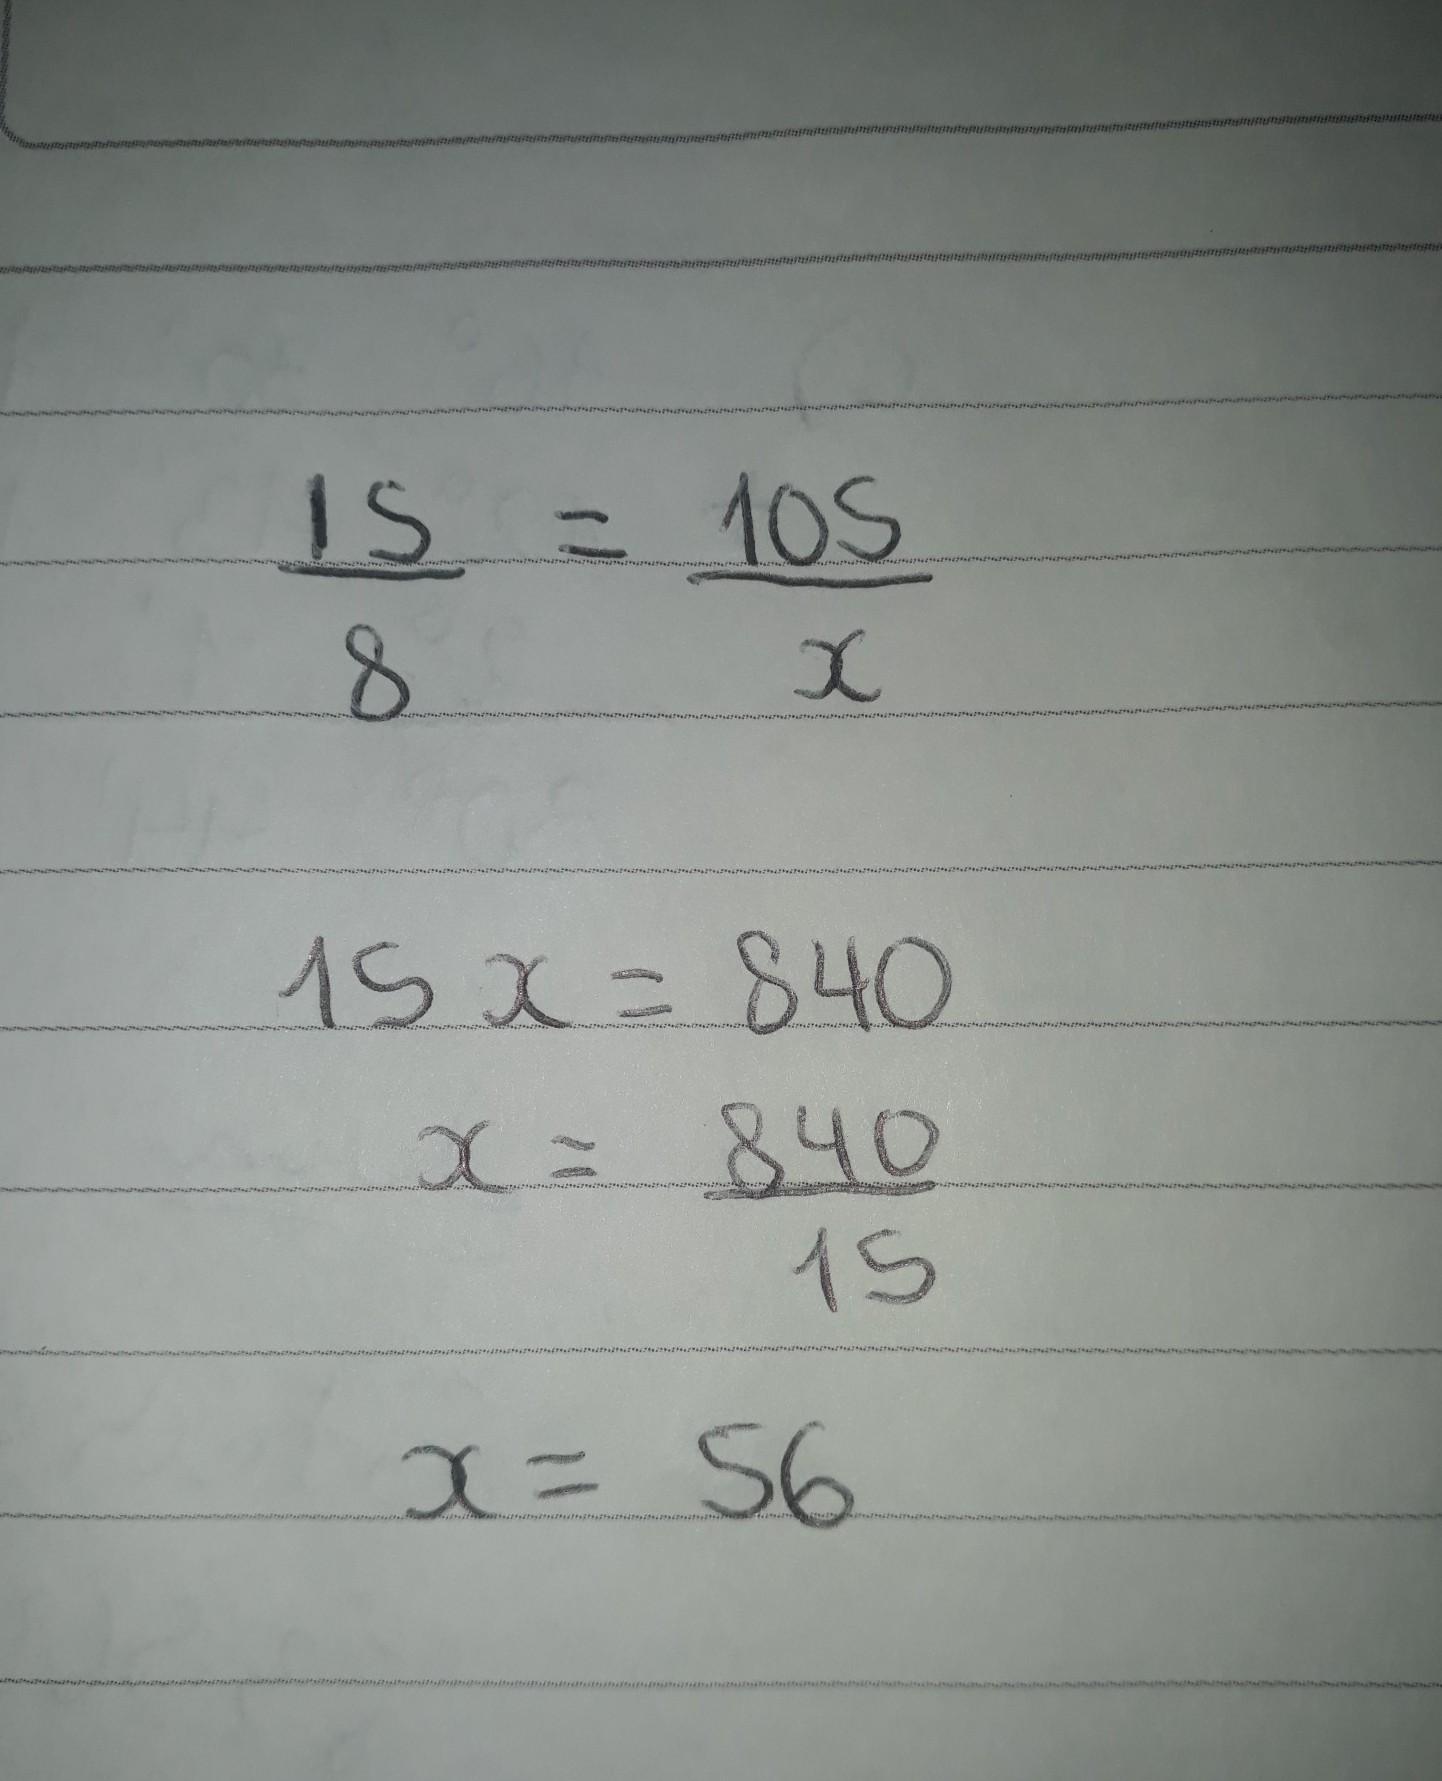 15 = 105
8 x
15 x = 840
x = 840
15
x = 56